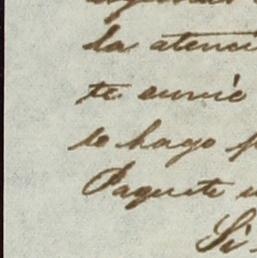 la atenci
te envio
lo hago p
Paquete u
Si